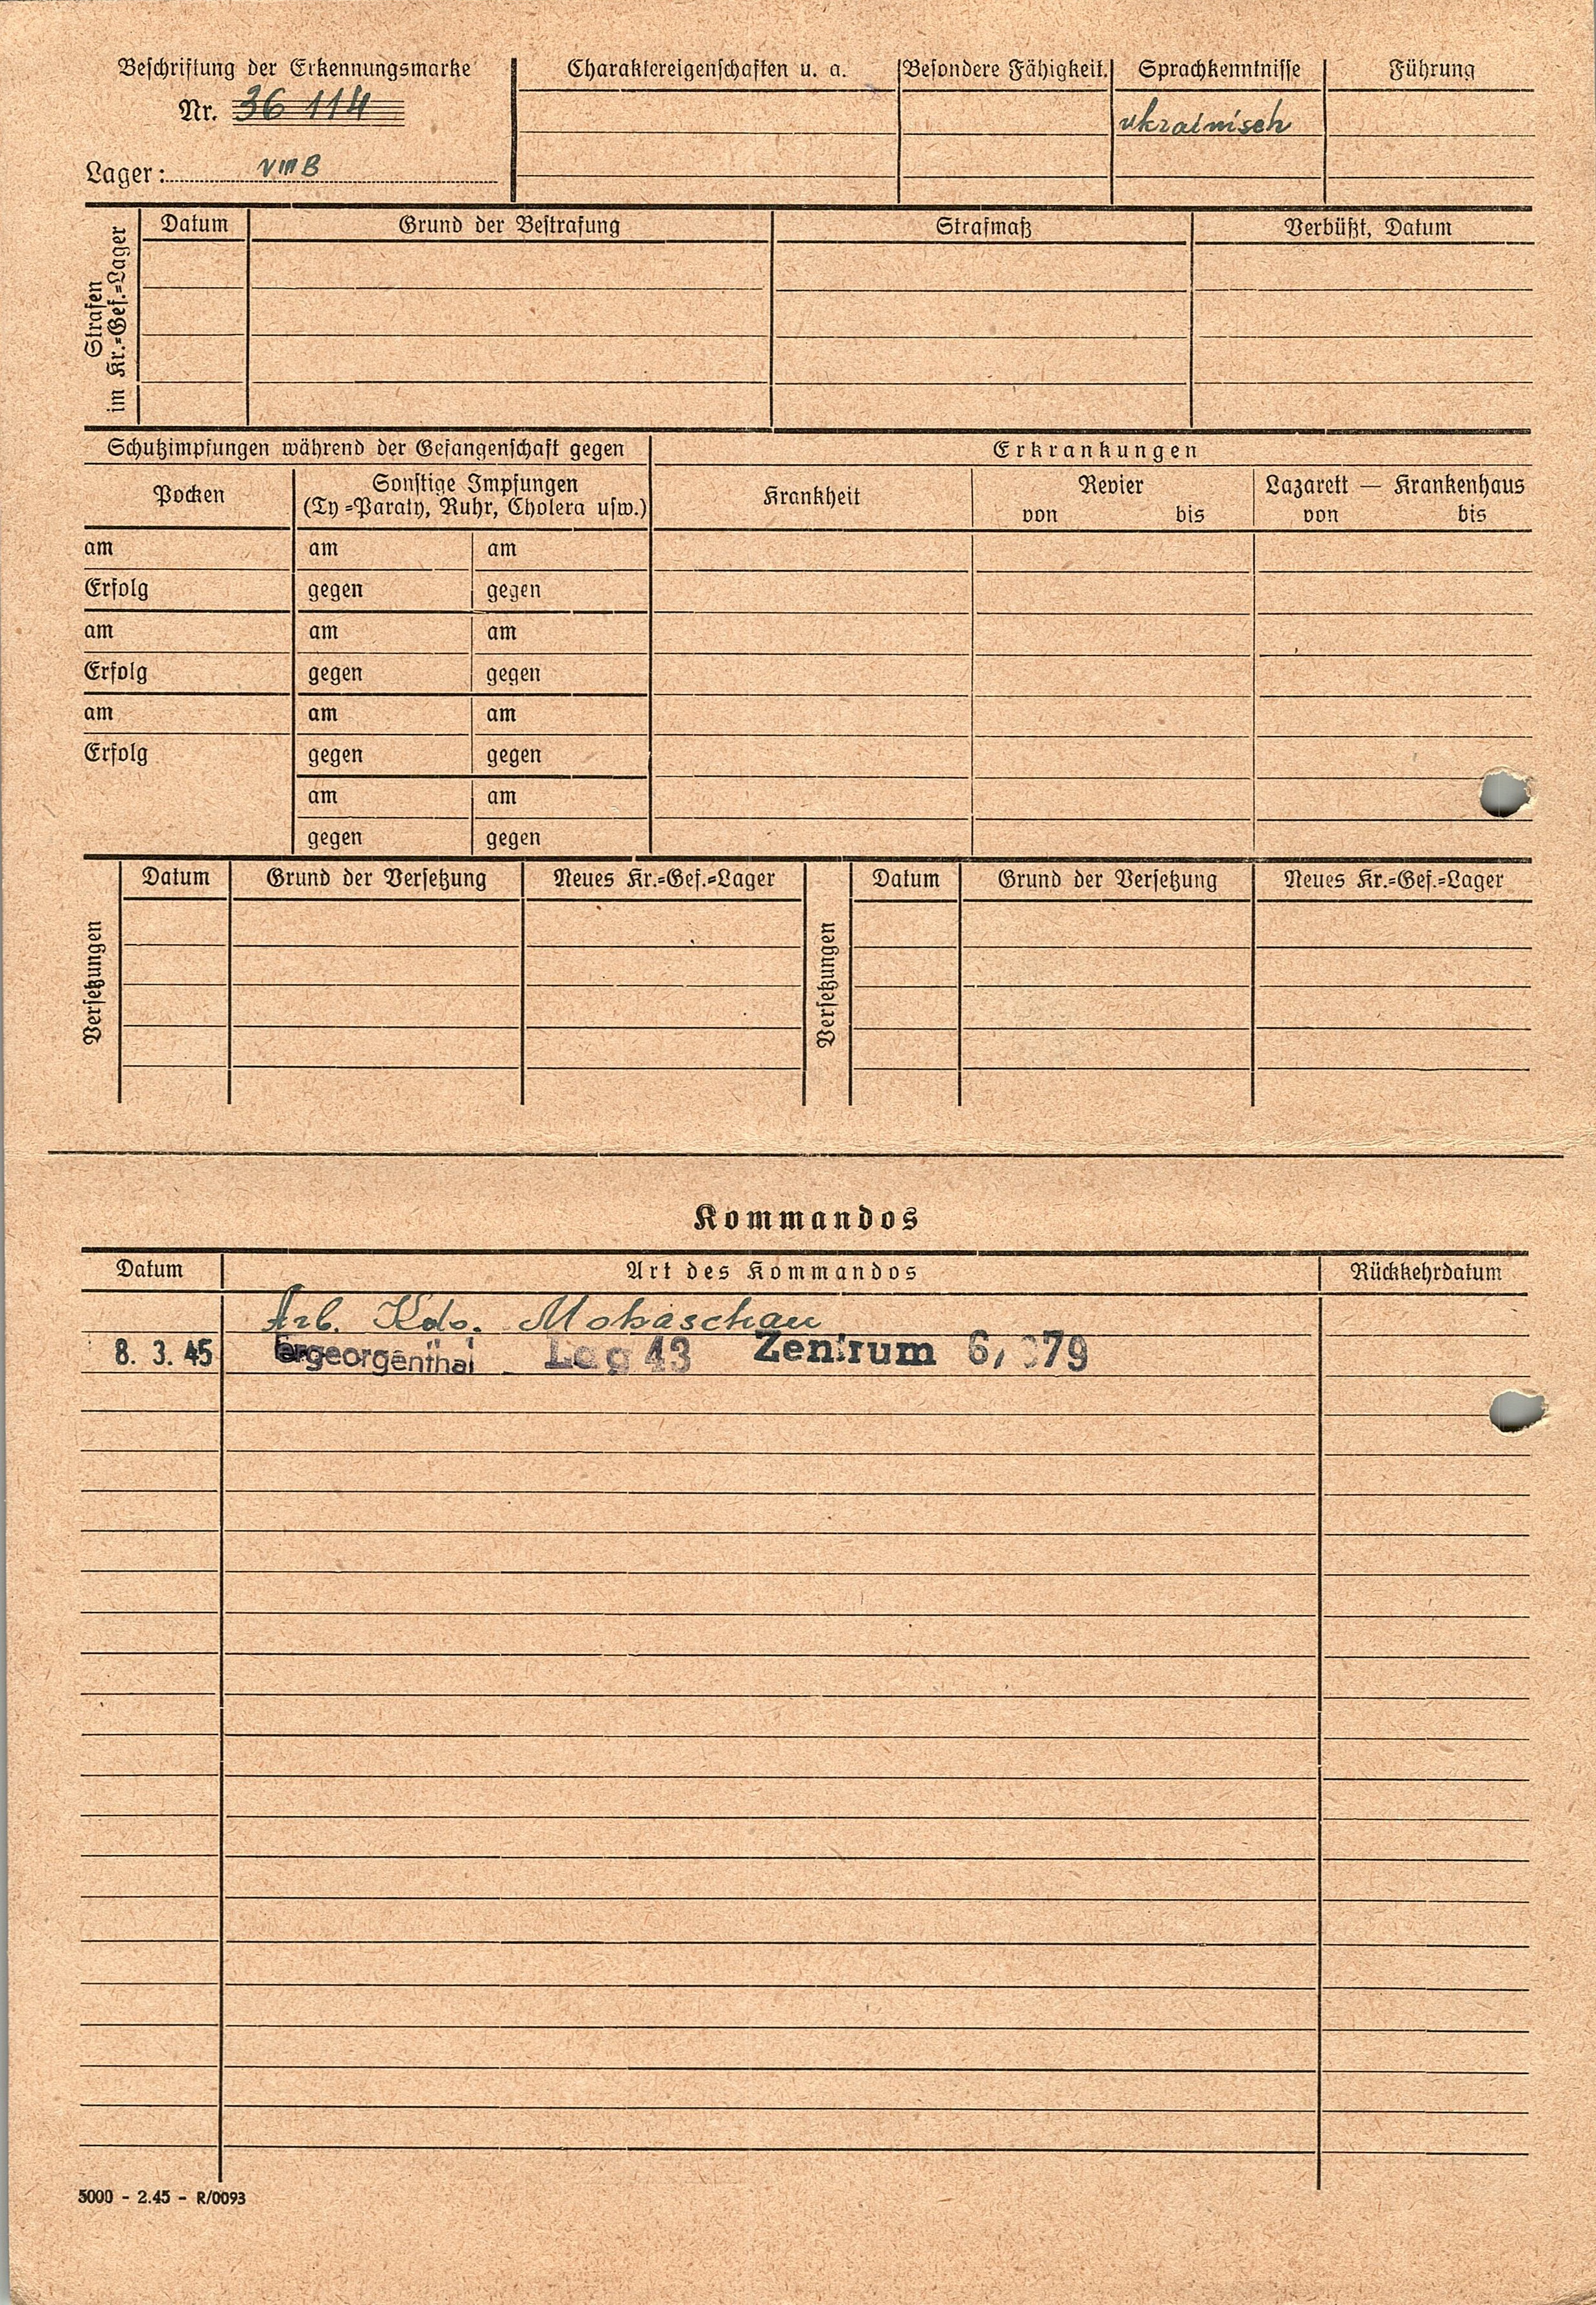 Beschriftung der Erkennungsmarke
Nr. 36 114
Lager: VIII B
Charaktereigenschaften u. a.
Besondere Fähigkeit.
Sprachkenntnisse
ukrainisch
Führung
Strafen
im Kr.=Gef.=Lager
Datum Grund der Bestrafung Strafmaß Verbüßt, Datum
Schutzimpfungen während der Gefangenschaft gegen
Erkrankungen
Pocken
Sonstige Impfungen
(Ty=Paraty, Ruhr, Cholera usw.)
Krankheit
Revier
von bis
Lazarett — Krankenhaus
von bis
am am am
Erfolg gegen gegen
am am am
Erfolg gegen gegen
am am am
Erfolg gegen gegen
am am
gegen gegen
Versetzungen
Datum Grund der Versetzung Neues Kr.=Gef.=Lager
Versetzungen
Datum Grund der Versetzung Neues Kr.=Gef.=Lager
Kommandos
Datum Art des Kommandos Rückkehrdatum
Arb. Kdo. Mokaschau
8. 3. 45 georgenthal 43 Zentrum
5000 - 2.45 - R/0093